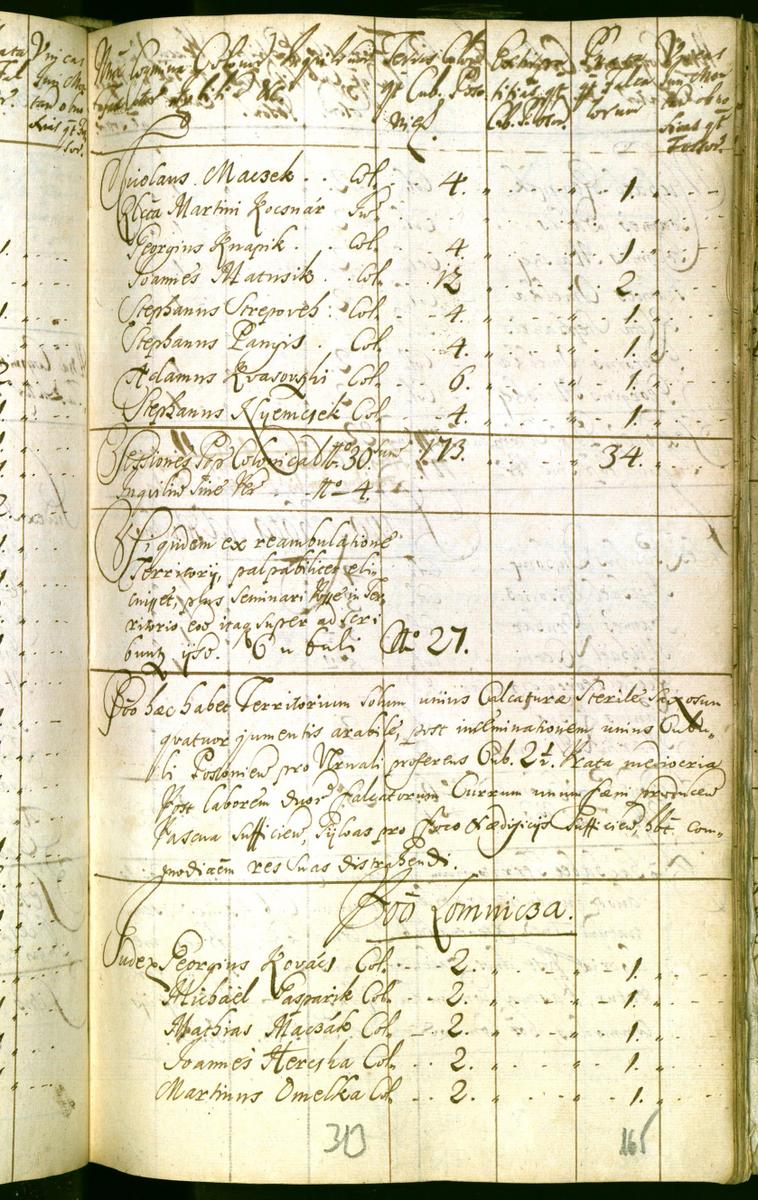 Terras Cub. Poso
Cub. Poson.
Nicolaus Macsek . . Col. 4. „ „ 1. „
Rlcta Martini Kocsnár
Georgius Knapik . . Col. 4. „ „ 1. „
Joannes Matusik . Col. 12 „ „ 2. „
Stephanus Strepoveh . Col. 4. „ „ 1. „
Stephanus Pangis . Col. 4. „ „ 1. „
Adamus Kvasovszki Col. 6. „ „ 1. „
Stephanus Nyemcsek Col. 4. „ „ 1. „
Sessiones Colonicales No 30. 173. „ 34. „
Inquilini sine No 4.
Si quidem ex reambulatione
Territorij, palpabiliter eli-
ciujet, plus seminari in Ter-
ritorio eos itaq super adscri
buntr Cubuli No 27.
Poss haec habet Territorium solum unius Calcaturae Sterile Saxosum
quatuor jumentis arabile, post inseminationem unius Cubu-
li Posonien pro Urnali proferens Cub. 2½. Prata mediocria
Post laborem duor falcatorum Currum unum faeni producen
Pascua sufficien, Sylvas pro Foco & aedificijs sufficien, hbt com-
moditatem res suas distrahendi.
Poss Lomnicza.
Judex Georgius Kovács Col. 2. „ „ 1. „
Michael Gasparik Col. 2. „ „ 1. „
Mathias Macsák Col. 2. „ „ 1. „
Joannes Hercsha Col. 2. „ „ 1. „
Martinus Omelka Col. 2. „ „ 1. „
313 165